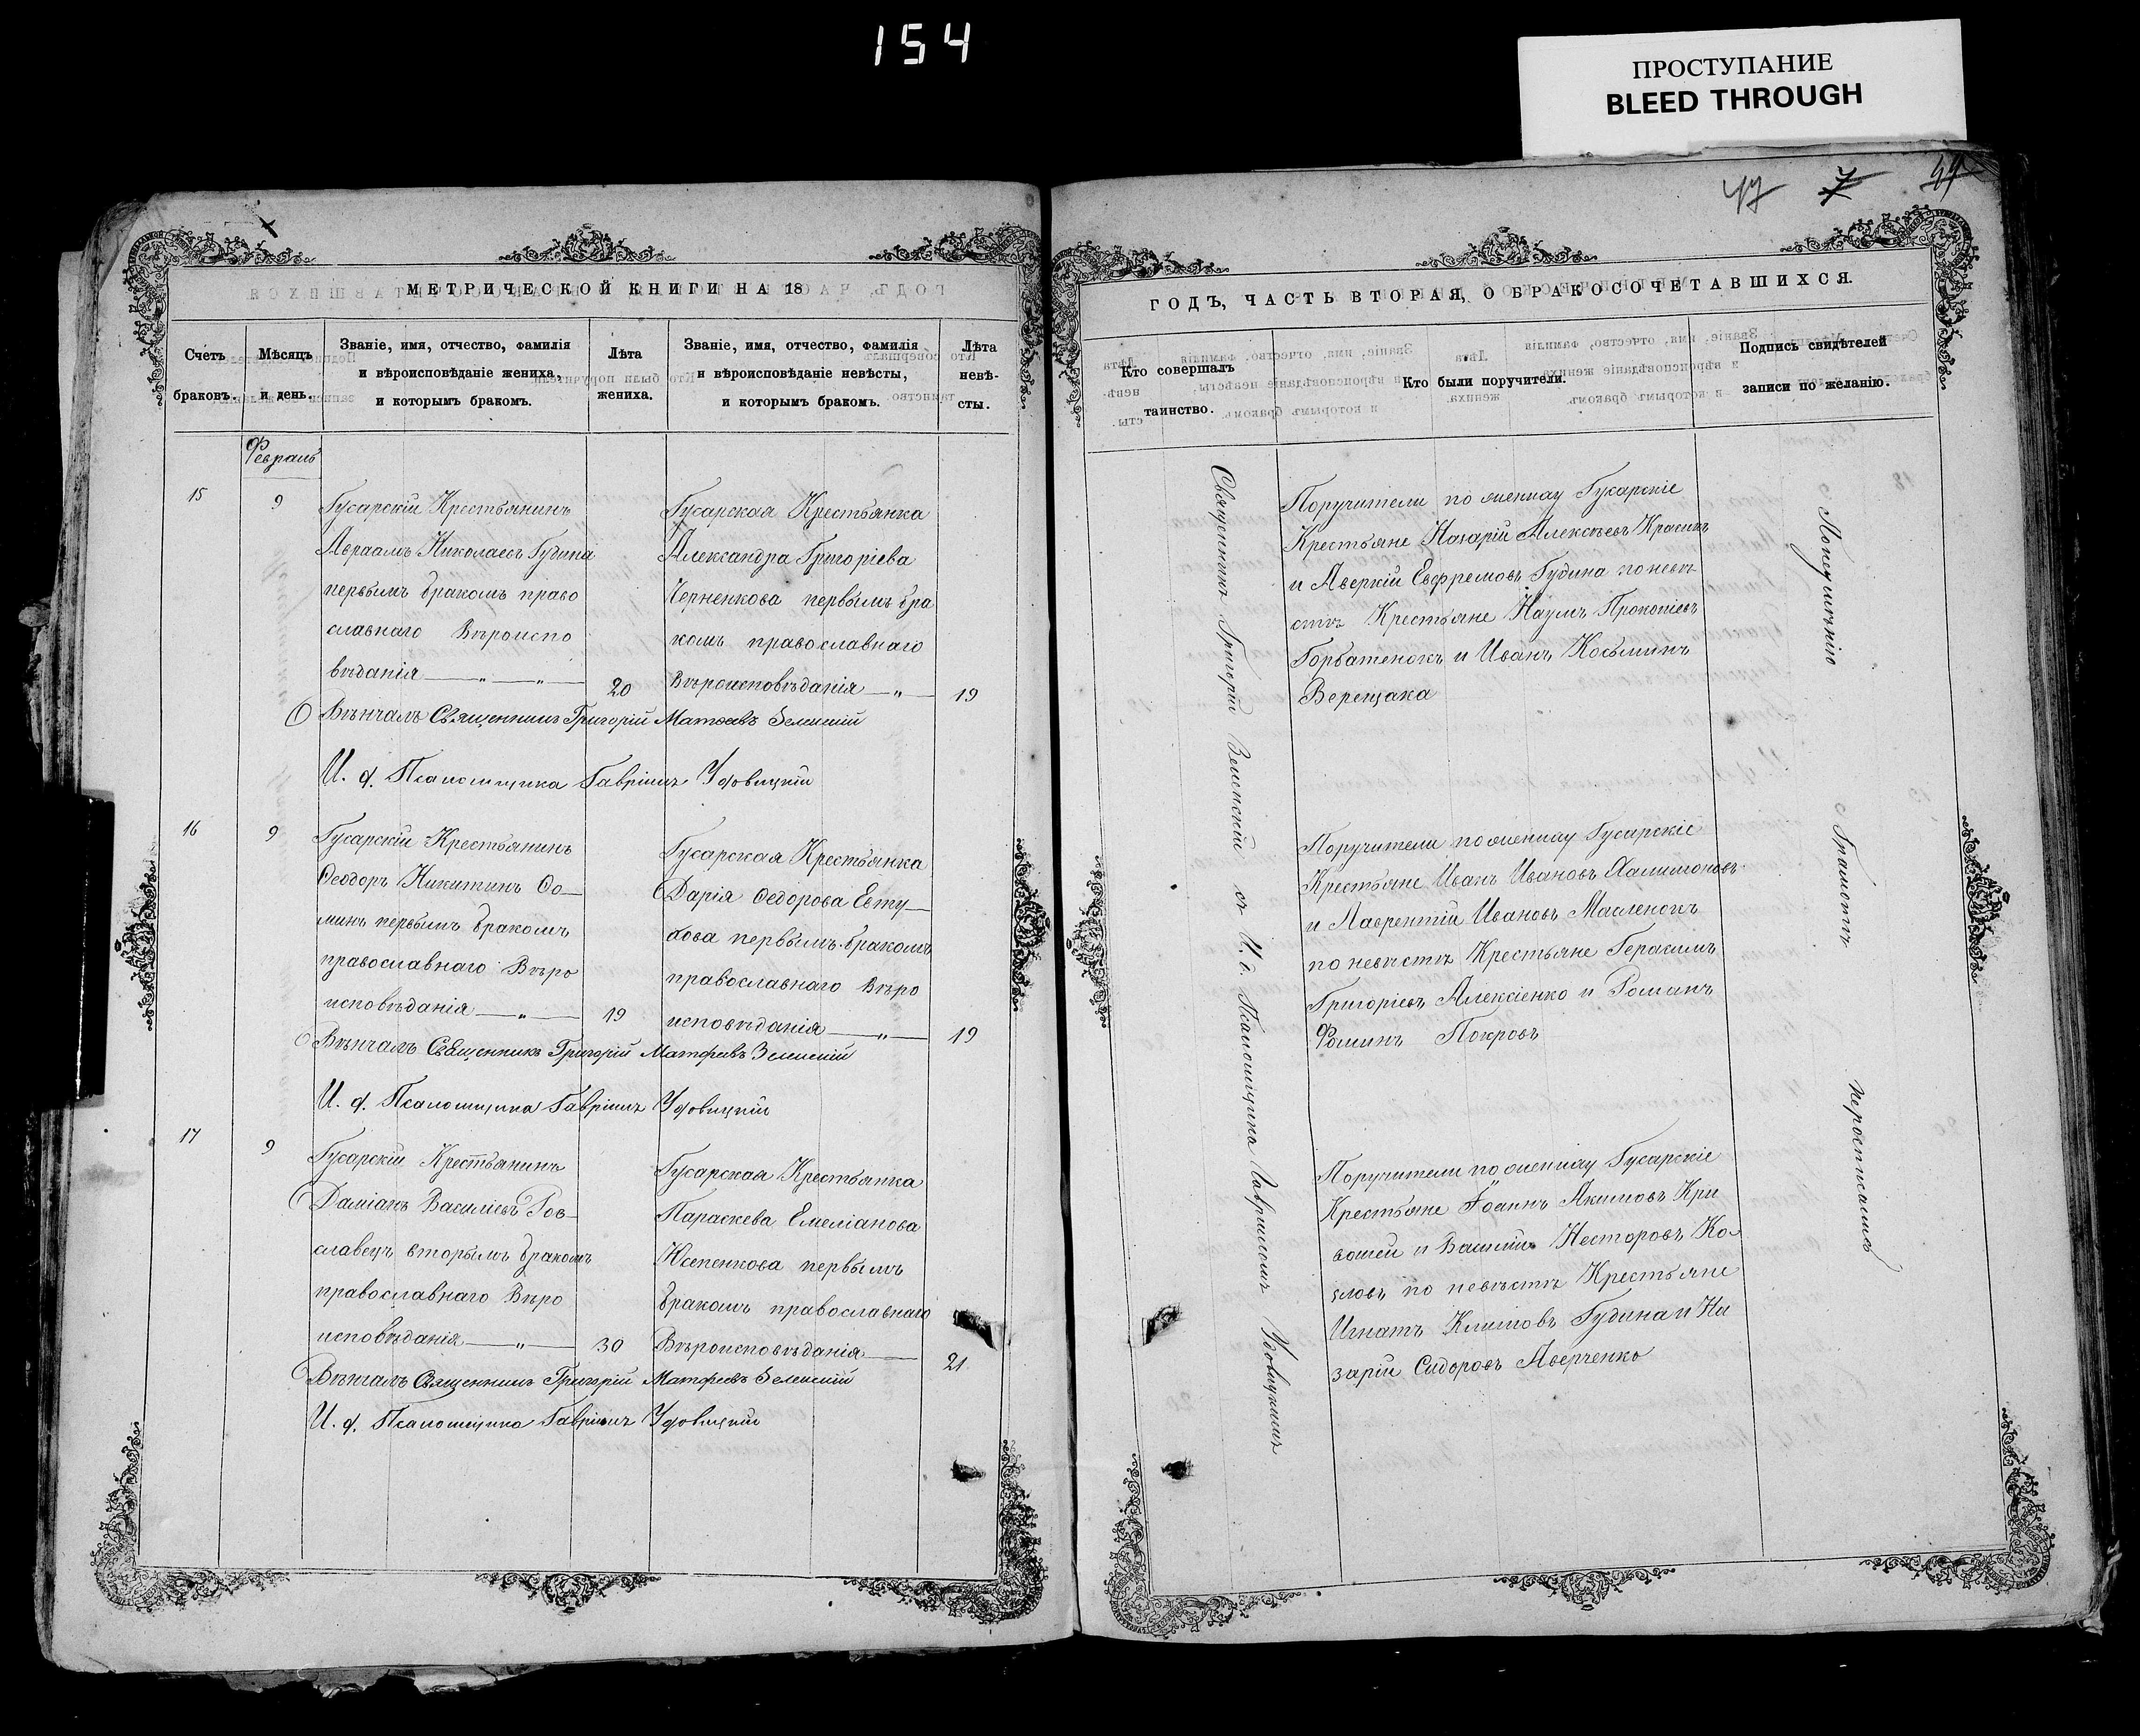 154
ПРОСТУПАНИЕ
BLEED THROUGH
47 7
МЕТРИЧЕСКОЙ КНИГИ НА 18
Счетъ браковъ.
Мѣсяцъ и день.
Званіе, имя, отчество, фамилія
и вѣроисповѣданіе жениха,
и которымъ бракомъ.
Лѣта
жениха.
Званіе, имя, отчество, фамилія
и вѣроисповѣданіе невѣсты,
и которымъ бракомъ.
Лѣта
невѣ-
сты.
Февраль
15
9
Гусарскій Крестьянинъ
Авраамъ Николаевъ Гудина
первымъ бракомъ право
славнаго Вѣроиспо
вѣданія — „ — „ —
20
Гусарская Крестьянка
Александра Григоріева
Черненкова первымъ бра
комъ православнаго
Вѣроисповѣданія — „ —
19
Вѣнчалъ Священникъ Григорій Матѳеевъ Зеленскій
И. д. Псаломщика Гавріилъ Удовицкій
16
9
Гусарскій Крестьянинъ
Ѳеодоръ Никитинъ Ѳо—
минъ первымъ бракомъ
православнаго Вѣро
исповѣданія — „ —
19
Гусарская Крестьянка
Дарія Ѳедорова Евту—
хова первымъ бракомъ
православнаго Вѣро
исповѣданія — „ —
19
Вѣнчалъ Священникъ Григорій Матфеевъ Зеленскій
И. д. Псаломщика Гавріилъ Удовицкій
17
9
Гусарскій Крестьянинъ
Даміанъ Василіевъ Рос—
славецъ вторымъ бракомъ
православнаго Вѣро
исповѣданія — „ —
30
Гусарская Крестьянка
Параскева Емеліанова
первымъ
бракомъ православнаго
Вѣроисповѣданія —
21
Вѣнчалъ Священникъ Григорій Матфеевъ Зеленскій
И. д. Псаломщика Гавріилъ Удовицкій
ГОДЪ, ЧАСТЬ ВТОРАЯ, О БРАКОСОЧЕТАВШИХСЯ.
Кто совершалъ
таинство.
Кто были поручители.
Подпись свидѣтелей
записи по желанію.
Священникъ Григорій Зеленскій съ И. д. Псаломщика Гавріиломъ Удовицкимъ
Поручители по жениху Гусарскіе
Крестьяне Назарій Алексѣевъ
и Аверкій Евфремовъ Гудина по невѣ
стѣ Крестьяне Наумъ Прокопіевъ
Горбатенокъ и Иванъ Косьминъ
Верещака
Поручители по жениху Гусарскіе
Крестьяне Иванъ Ивановъ Халимоновъ
и Лаврентій Ивановъ Масленокъ
по невѣстѣ Крестьяне Герасимъ
Григоріевъ Алексіенко и Романъ
Фоминъ Покровъ
Поручители по жениху Гусарскіе
Крестьяне Іоаннъ Якимовъ Кри
вошеи и Василій Несторовъ Ко
зловъ по невѣстѣ Крестьяне
Игнатъ Климовъ Гудина и На
зарій Сидоровъ Аверченко
По неумѣнію Грамотѣ не росписались